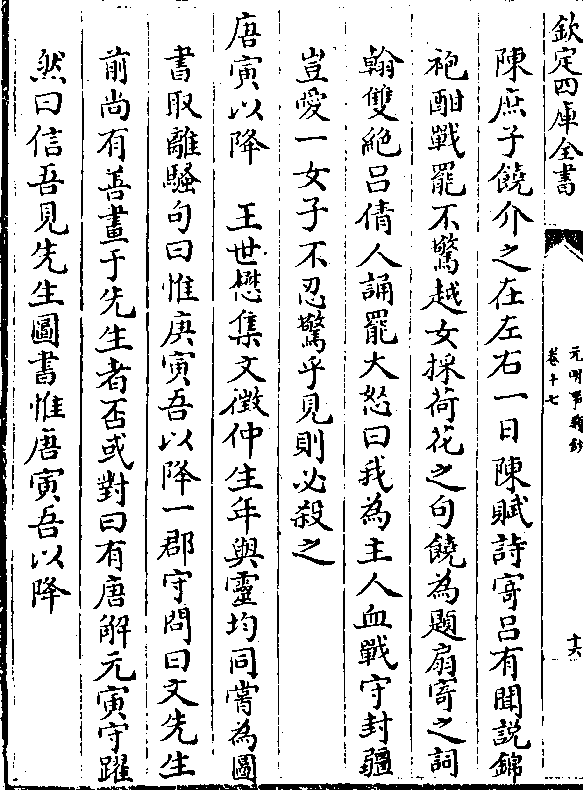 欽定四庫全書
元明事類鈔
卷十七
十六
陳庶子饒介之在左右一日陳賦詩寄呂有聞説錦
袍酣戰罷不驚越女採荷花之句饒為題扇寄之詞
翰雙絶呂倩人誦罷大怒曰我為主人血戰守封疆
豈愛一女子不忍驚乎見則必殺之
唐寅以降　王世懋集文徵仲生年與靈均同嘗為圖
書取離騷句曰惟庚寅吾以降一郡守問曰文先生
前尚有善畫于先生者否或對曰有唐解元寅守躍
然曰信吾見先生圖書惟唐寅吾以降